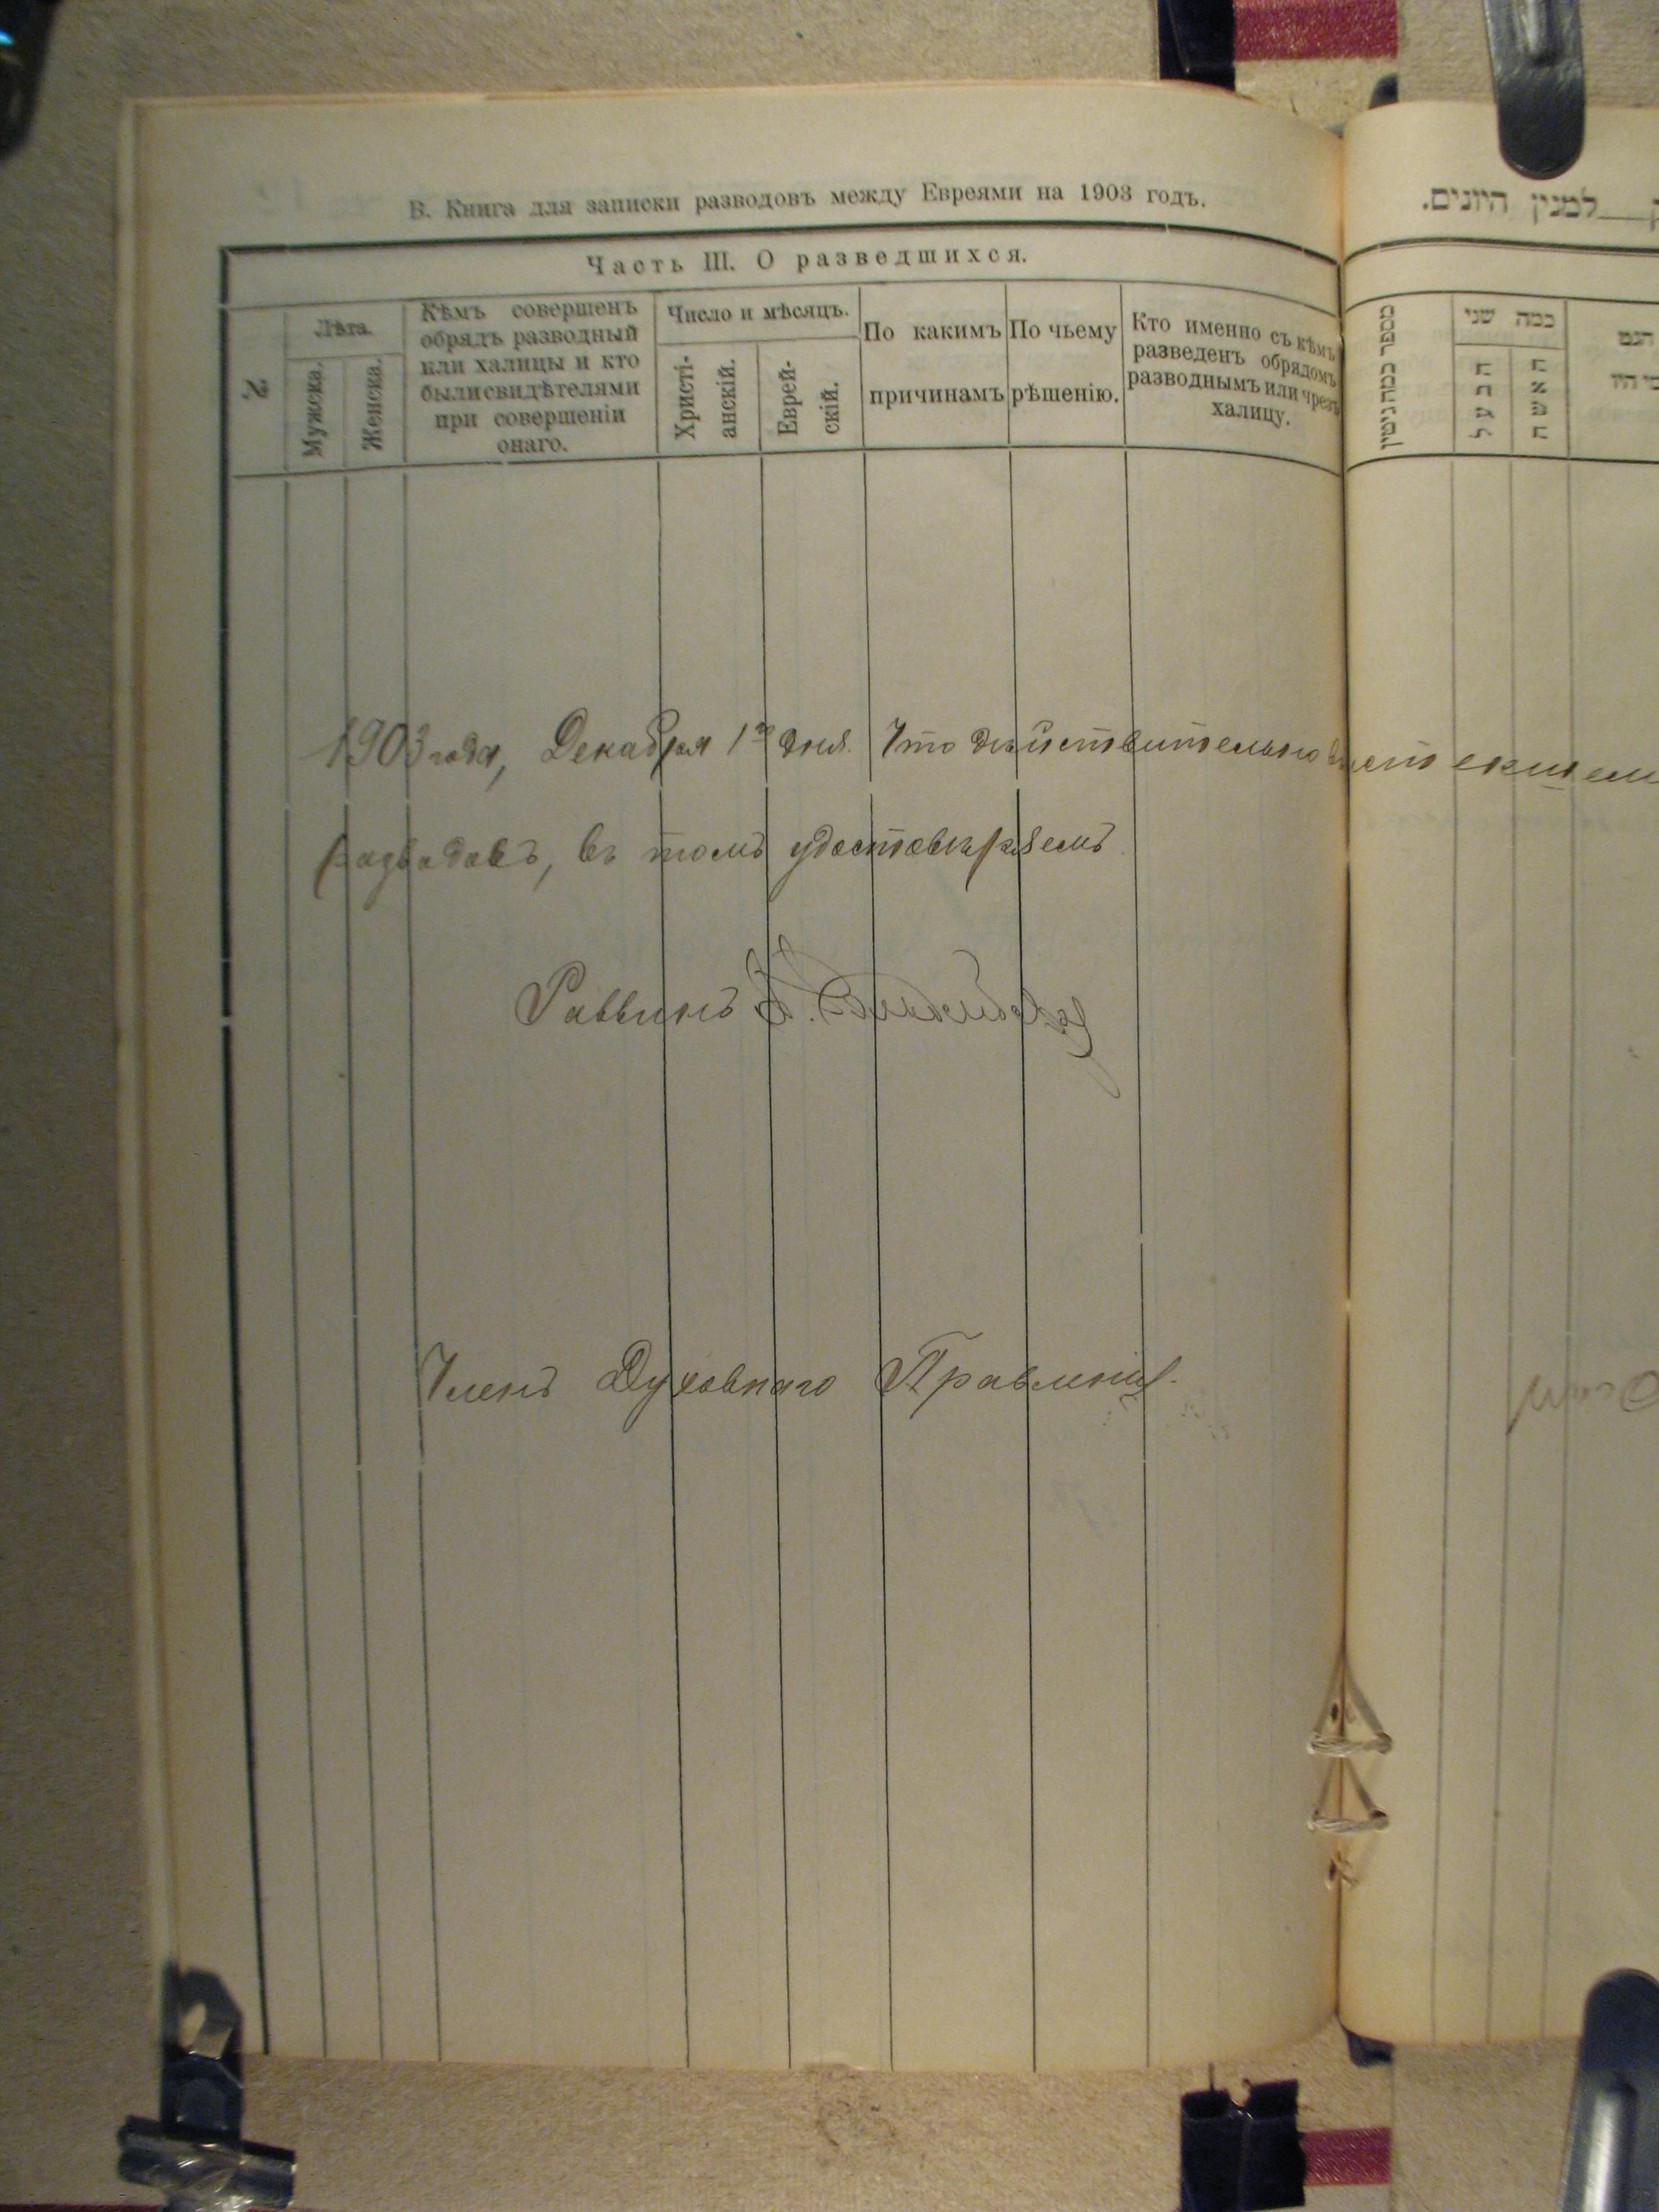 В. Книга для записки разводовъ между Евреями на 1903 годъ.
Часть III. О разведшихся.
№
Лѣта.
Мужска.
Женска.
Кѣмъ совершенъ
обрядъ разводный
или халицы и кто
были свидѣтелями
при совершеніи
онаго.
Число и мѣсяцъ.
Христі-
анскій.
Еврей-
скій.
По какимъ
причинамъ
По чьему
рѣшенію.
Кто именно съ кѣмъ
разведенъ обрядомъ
разводнымъ или чрезъ
халицу.
1903 года, Декабря 1го дня. Что дѣйствительно
разводовъ, въ томъ удостовѣряемъ
Раввинъ
Членъ Духовнаго Правленія.
למנין היונים.
מספר כמה גיטין
כמה שני
הבעל
האשה